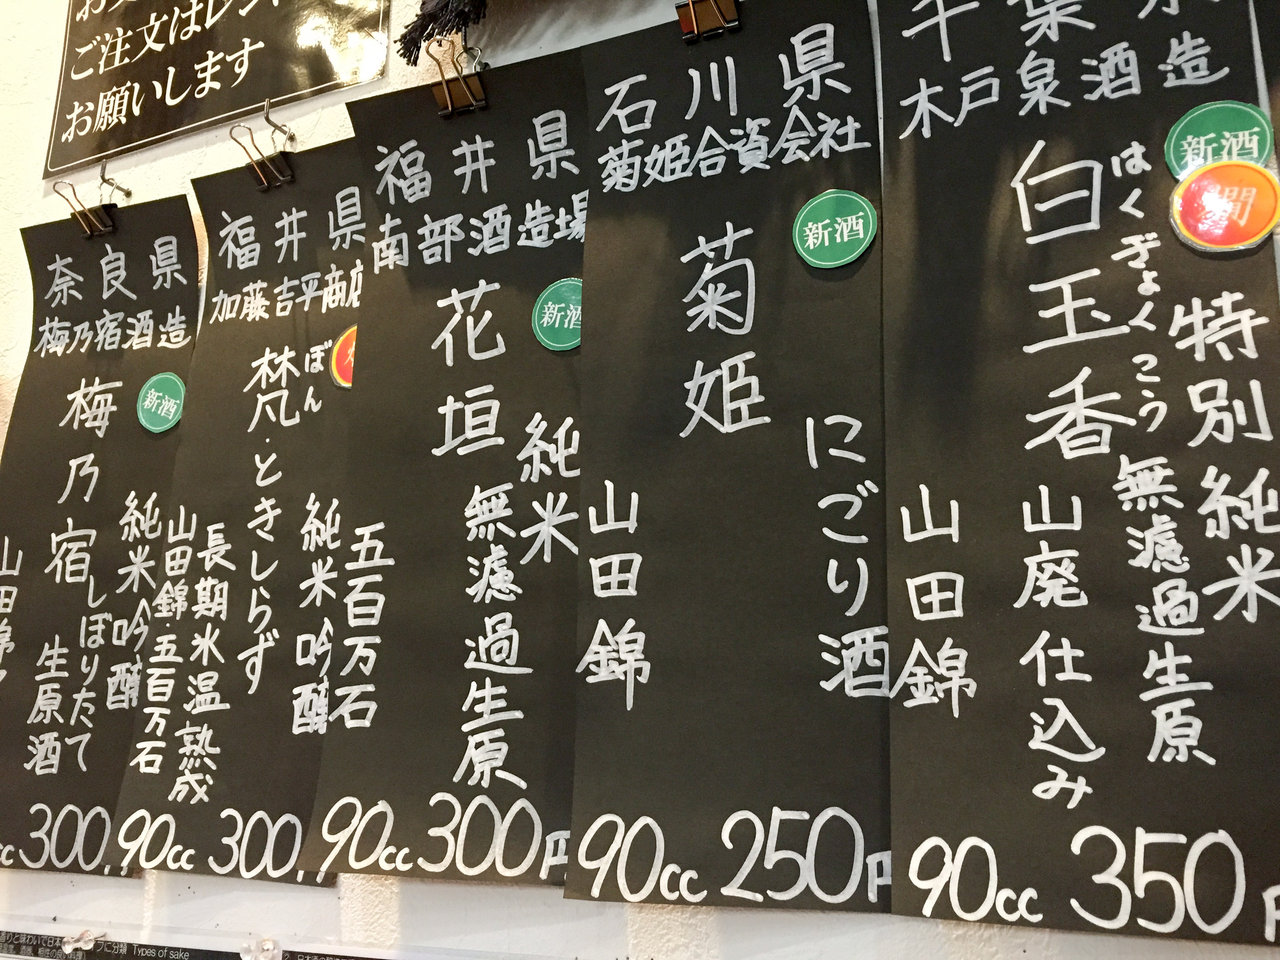 ご注文はレジ
お願いします
千葉県
木戸泉酒造
新酒
白玉香
はくぎょくこう
特別純米
無濾過生原
山廃仕込み
山田錦
90cc 350円
石川県
菊姫合資会社
新酒
菊姫
にごり酒
山田錦
90cc 250円
福井県
南部酒造場
新酒
花垣
純米
無濾過生原
五百万石
90cc 300円
福井県
加藤吉平商店
梵・ときしらず
ぼん
純米吟醸
長期氷温熟成
山田錦 五百万石
90cc 300
奈良県
梅乃宿酒造
新酒
梅乃宿
しぼりたて
純米吟醸
生原酒
山田錦
cc 300
Types of sake